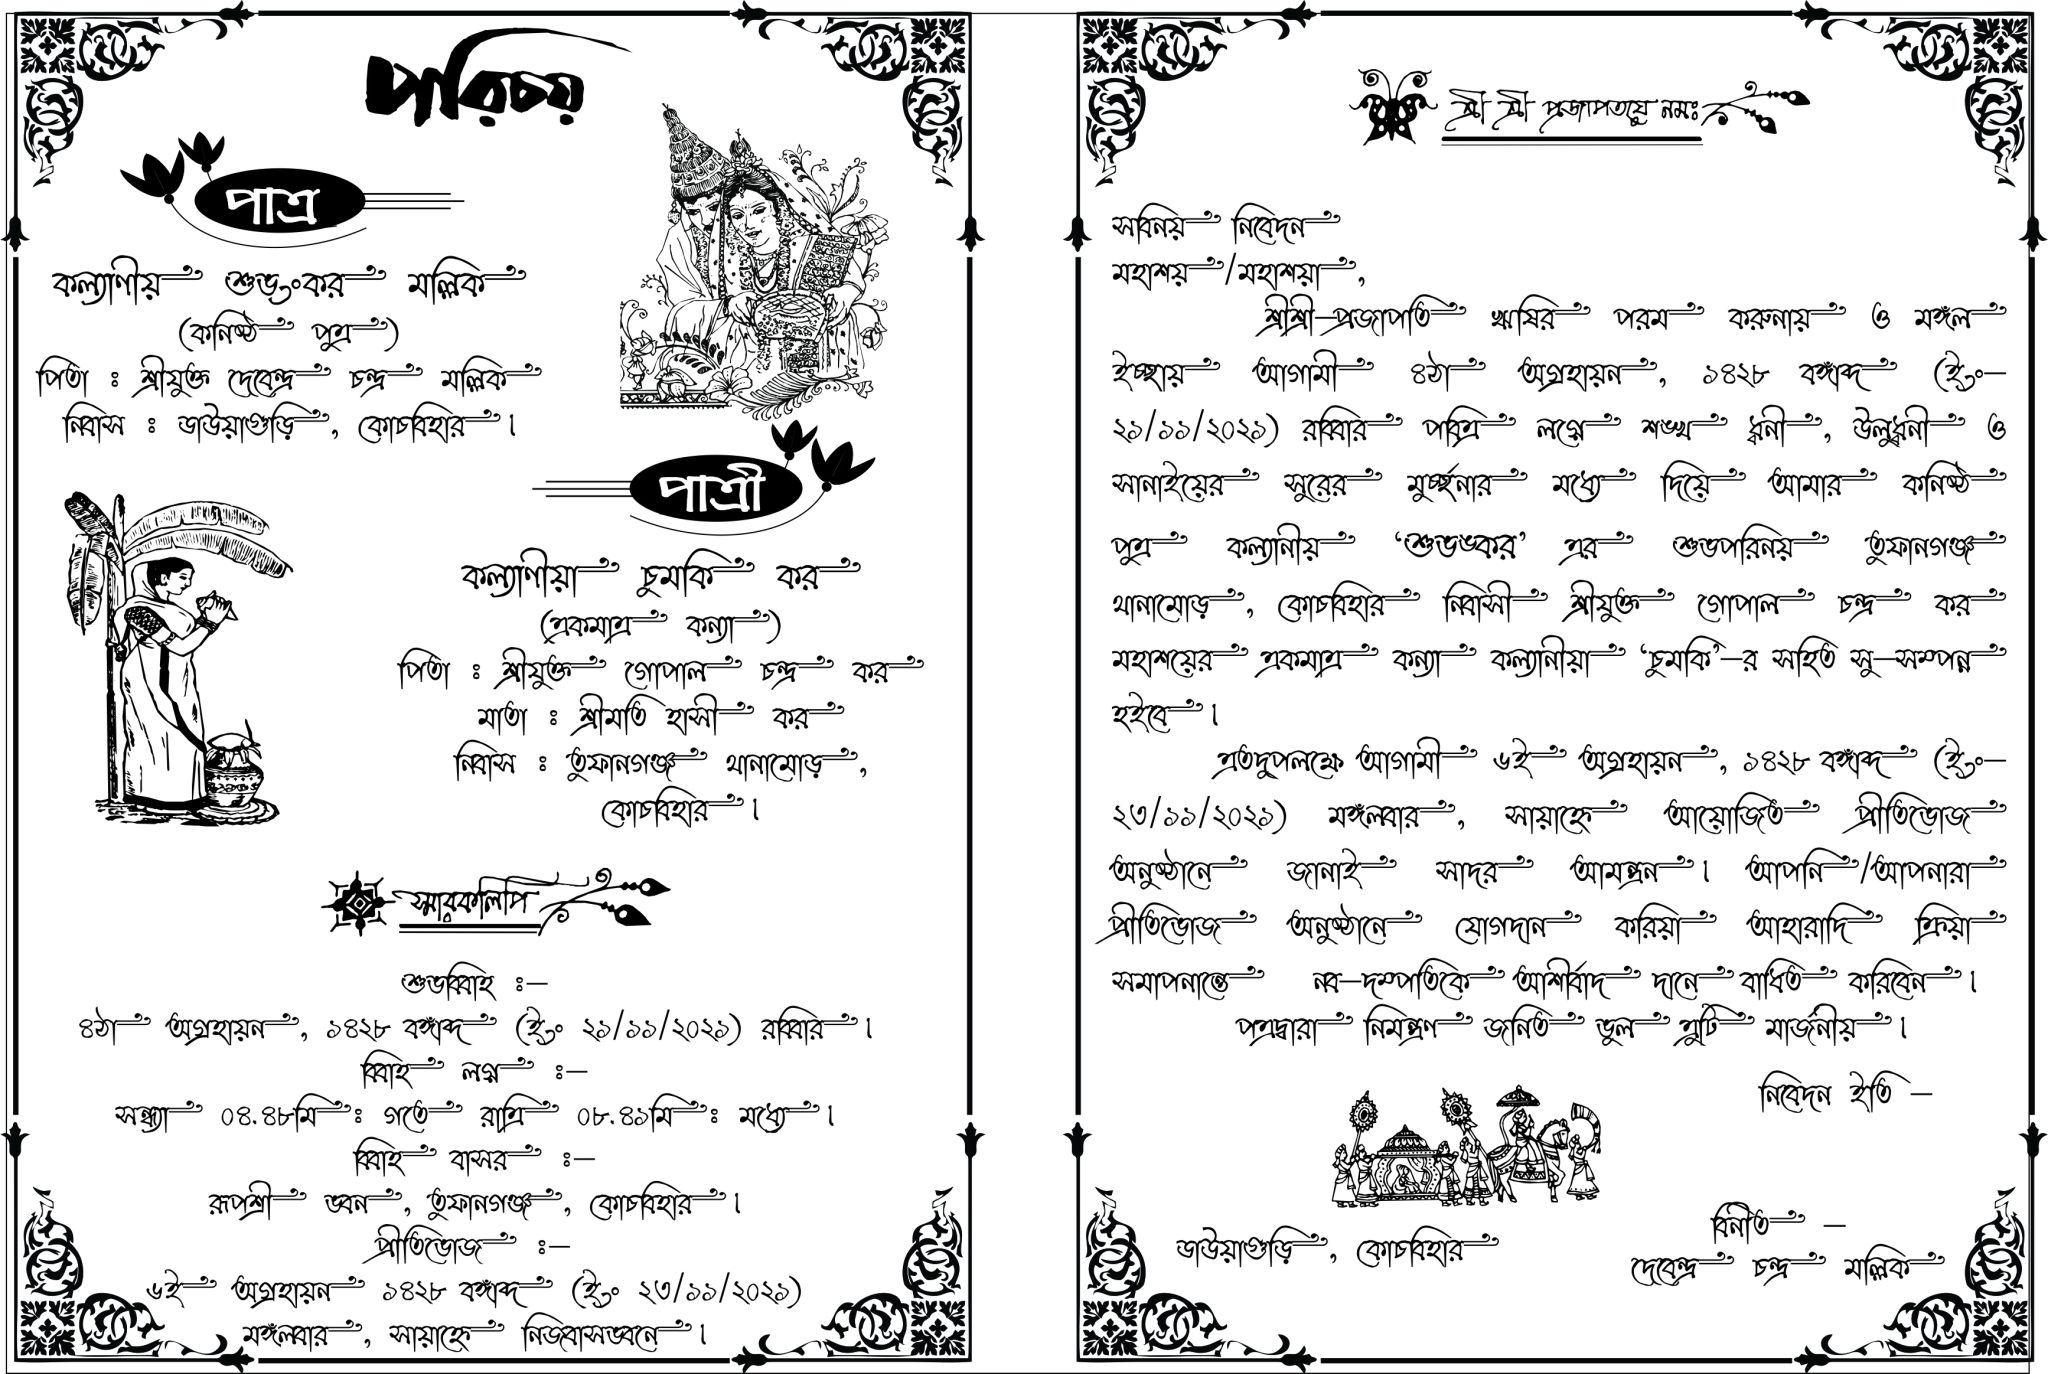 পরিচয়
পাত্র
কল্যাণীয় শুভংকর মল্লিক
(কনিষ্ঠ পুত্র)
পিতা ঃ শ্রীযুক্ত দেবেন্দ্র চন্দ্র মল্লিক
নিবাস ঃ ডাউয়াগুড়ি, কোচবিহার।
পাত্রী
কল্যাণীয়া চুমকি কর
(একমাত্র কন্যা)
পিতা ঃ শ্রীযুক্ত গোপাল চন্দ্র কর
মাতা ঃ শ্রীমতি হাসী কর
নিবাস ঃ তুফানগঞ্জ থানামোড়,
কোচবিহার।
স্মারকলিপি
শুভবিবাহ ঃ-
৪ঠা অগ্রহায়ন, ১৪২৮ বঙ্গাব্দ (ইং ২১/১১/২০২১) রবিবার।
বিবাহ লগ্ন ঃ-
সন্ধ্যা ০৪.৪৮মিঃ গতে রাত্রি ০৮.৪১মিঃ মধ্যে।
বিবাহ বাসর ঃ-
রূপশ্রী ভবন, তুফানগঞ্জ, কোচবিহার।
প্রীতিভোজ ঃ-
৬ই অগ্রহায়ন ১৪২৮ বঙ্গাব্দ (ইং ২৩/১১/২০২১)
মঙ্গলবার, সায়াহ্নে নিজবাসভবনে।
শ্রী শ্রী প্রজাপতয়ে নমঃ
সবিনয় নিবেদন
মহাশয়/মহাশয়া,
শ্রীশ্রী-প্রজাপতি ঋষির পরম করুনায় ও মঙ্গল
ইচ্ছায় আগামী ৪ঠা অগ্রহায়ন, ১৪২৮ বঙ্গাব্দ (ইং-
২১/১১/২০২১) রবিবার পবিত্র লগ্নে শঙ্খ ধ্বনী, উলুধ্বনী ও
সানাইয়ের সুরের মুর্চ্ছনার মধ্যে দিয়ে আমার কনিষ্ঠ
পুত্র কল্যানীয় ‘শুভঙ্কর’ এর শুভপরিনয় তুফানগঞ্জ
থানামোড়, কোচবিহার নিবাসী শ্রীযুক্ত গোপাল চন্দ্র কর
মহাশয়ের একমাত্র কন্যা কল্যানীয়া ‘চুমকি’-র সহিত সু-সম্পন্ন
হইবে।
এতদুপলক্ষে আগামী ৬ই অগ্রহায়ন, ১৪২৮ বঙ্গাব্দ (ইং-
২৩/১১/২০২১) মঙ্গলবার, সায়াহ্নে আয়োজিত প্রীতিভোজ
অনুষ্ঠানে জানাই সাদর আমন্ত্রন। আপনি/আপনারা
প্রীতিভোজ অনুষ্ঠানে যোগদান করিয়া আহারাদি ক্রিয়া
সমাপনান্তে নব-দম্পতিকে আশীর্বাদ দানে বাধিত করিবেন।
পত্রদ্বারা নিমন্ত্রণ জনিত ভুল ত্রুটি মার্জনীয়।
নিবেদন ইতি -
বিনীত -
ডাউয়াগুড়ি, কোচবিহার
দেবেন্দ্র চন্দ্র মল্লিক